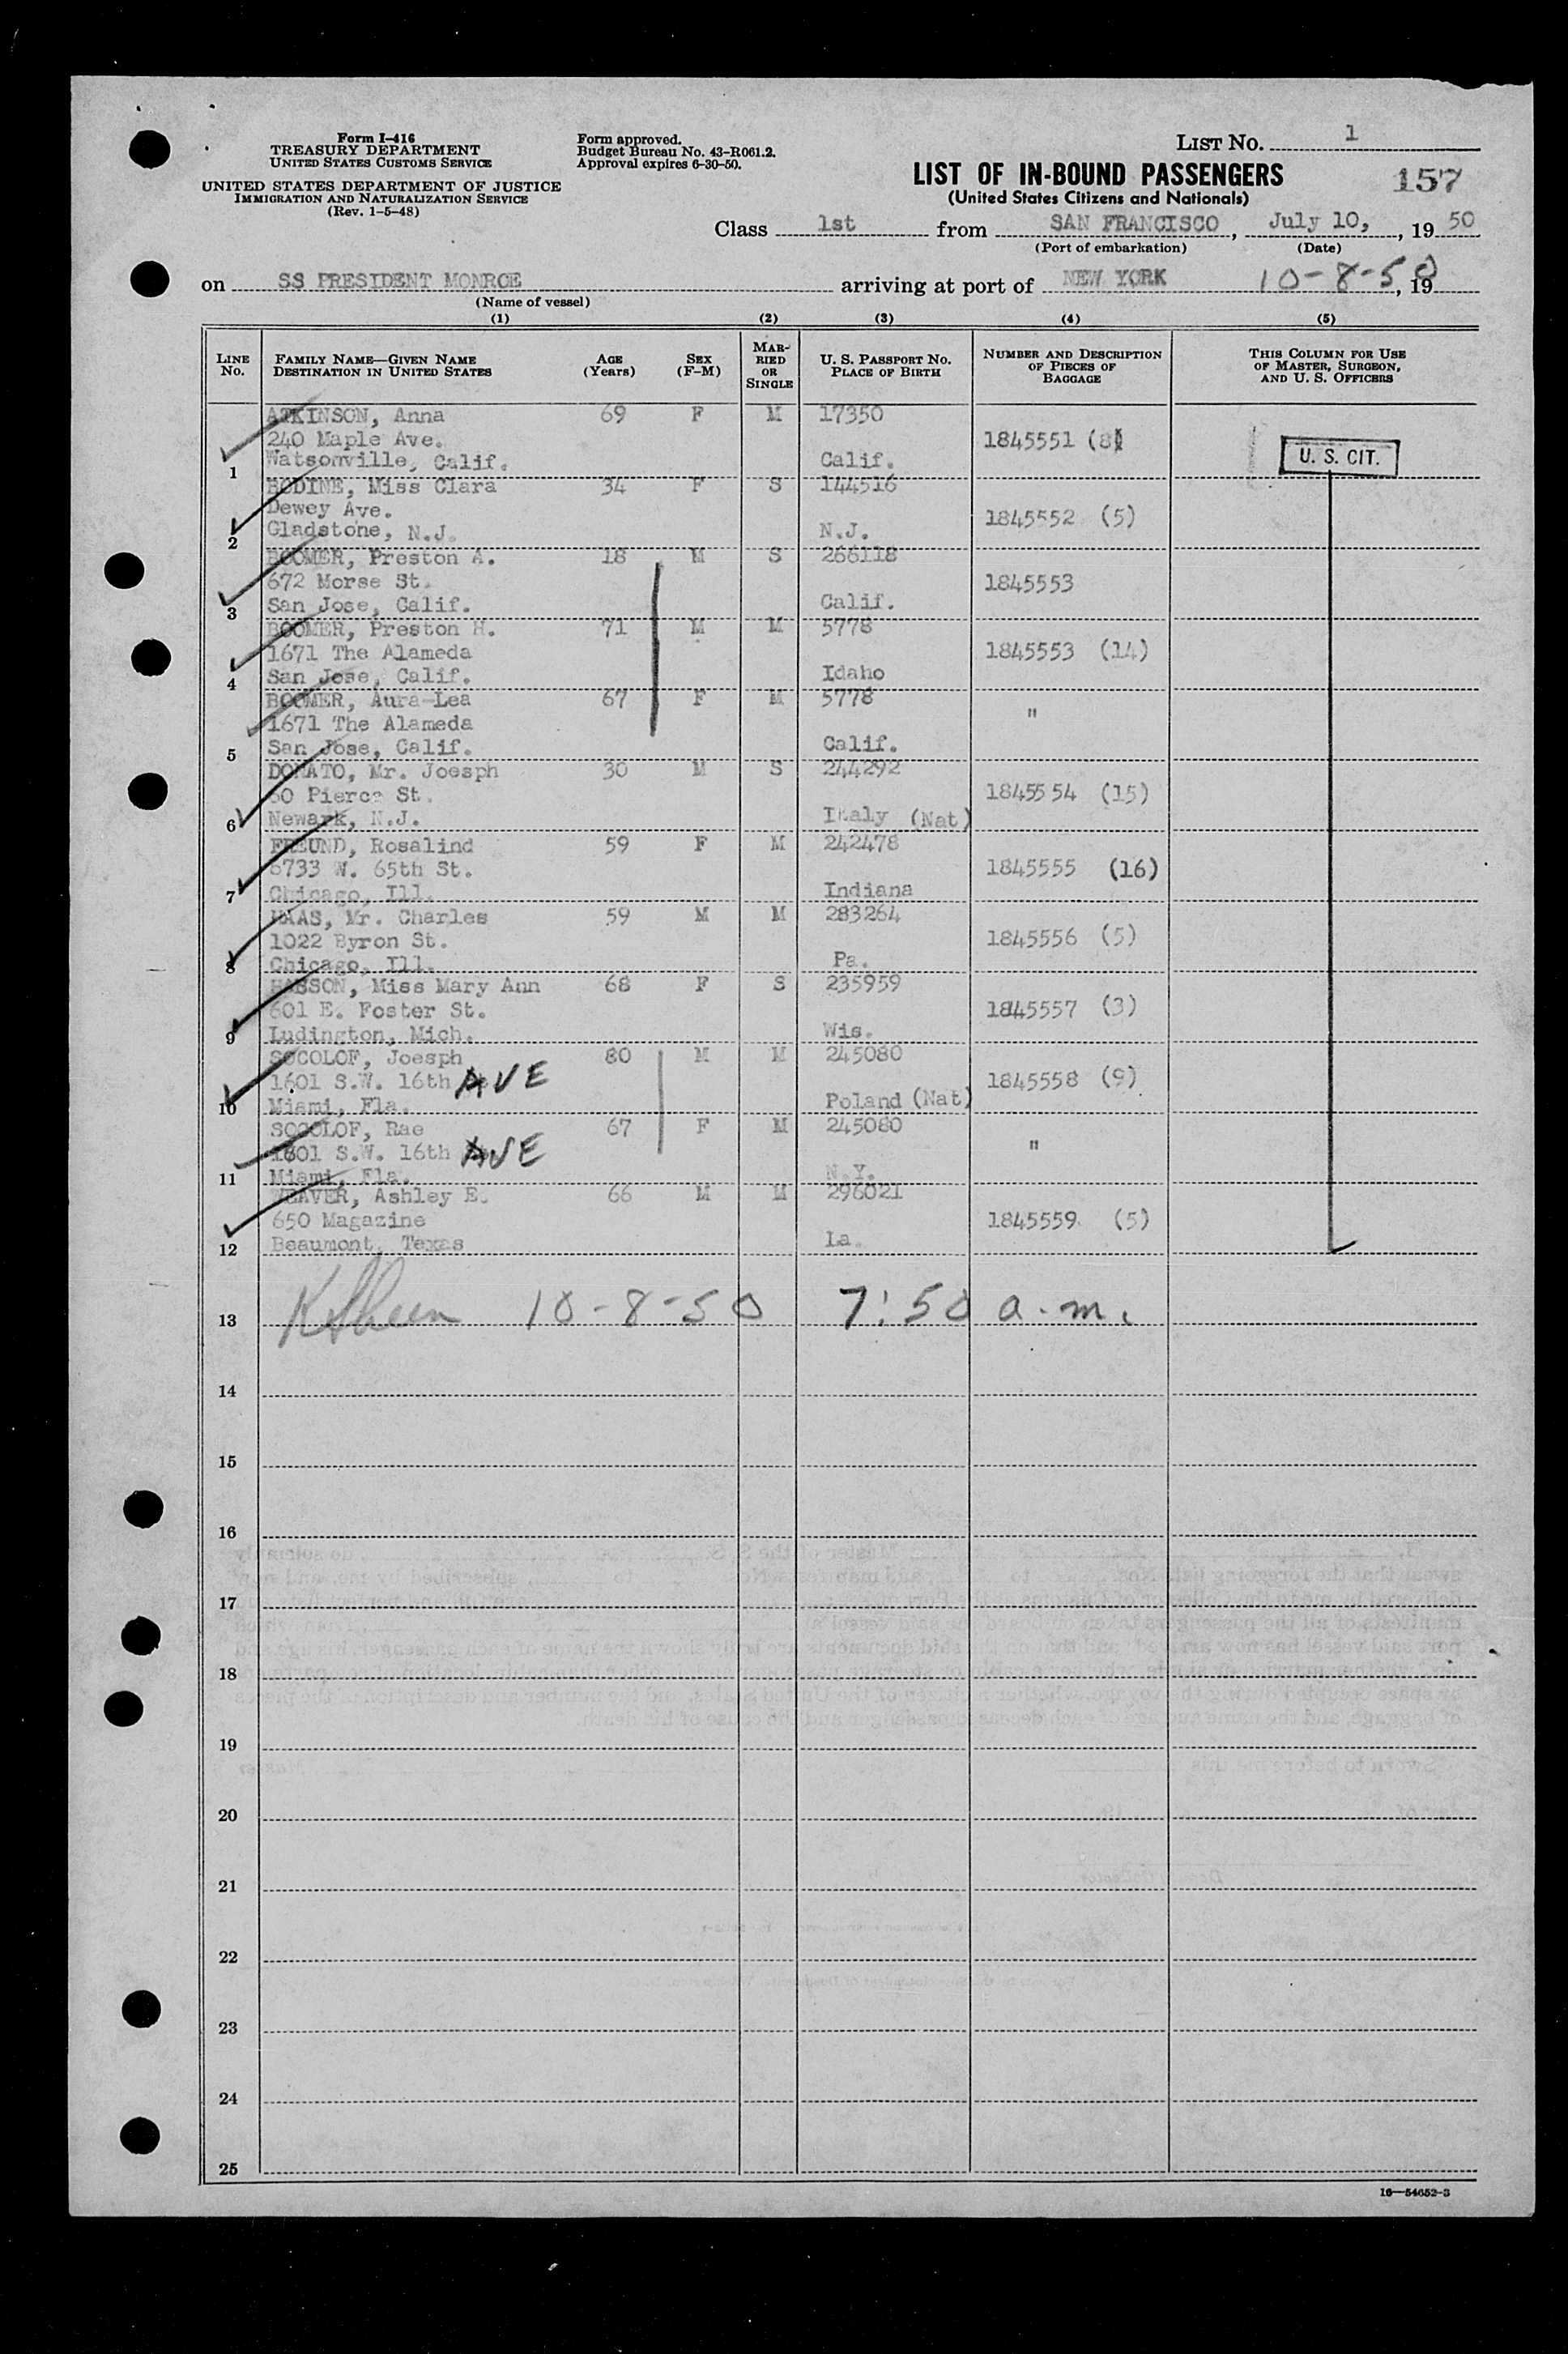 Form I-416
TREASURY DEPARTMENT
UNITED STATES CUSTOMS SERVICE
UNITED STATES DEPARTMENT OF JUSTICE
IMMIGRATION AND NATURALIZATION SERVICE
(Rev. 1-5-48)
Form approved.
Budget Bureau No. 43-R061.2.
Approval expires 6-30-50.
LIST NO. 1
LIST OF IN-BOUND PASSENGERS
157
(United States Citizens and Nationals)
Class 1st from SAN FRANCISCO, July 10, 1950
(Port of embarkation) (Date)
on SS PRESIDENT MONROE arriving at port of NEW YORK 10-8-50, 19
(Name of vessel)
(1) (2) (3) (4) (5)
LINE No. FAMILY NAME—GIVEN NAME DESTINATION IN UNITED STATES AGE (Years) SEX (F-M) MARRIED OR SINGLE U. S. PASSPORT NO. PLACE OF BIRTH NUMBER AND DESCRIPTION OF PIECES OF BAGGAGE THIS COLUMN FOR USE OF MASTER, SURGEON, AND U. S. OFFICERS
ATKINSON, Anna 69 F M 17350
240 Maple Ave. 1845551 (8)
1 Watsonville, Calif. Calif. U. S. CIT.
BODINE, Miss Clara 34 F S 144516
Dewey Ave. 1845552 (5)
2 Gladstone, N.J. N.J.
BOOMER, Preston A. 18 M S 266118
672 Morse St. 1845553
3 San Jose, Calif. Calif.
BOOMER, Preston H. 71 M M 5778
1671 The Alameda 1845553 (14)
4 San Jose, Calif. Idaho
BOOMER, Aura-Lea 67 F M 5778
1671 The Alameda "
5 San Jose, Calif. Calif.
DONATO, Mr. Joesph 30 M S 244292
60 Pierce St. 1845554 (15)
6 Newark, N.J. Italy (Nat)
FREUND, Rosalind 59 F M 242478
6733 W. 65th St. 1845555 (16)
7 Chicago, Ill. Indiana
HAAS, Mr. Charles 59 M M 283264
1022 Byron St. 1845556 (5)
8 Chicago, Ill. Pa.
Miss Mary Ann 68 F S 235959
601 E. Foster St. 1845557 (3)
9 Ludington, Mich. Wis.
SOCOLOF, Joesph 80 M M 245080
1601 S.W. 16th AVE 1845558 (9)
10 Miami, Fla. Poland (Nat)
SOCOLOF, Rae 67 F M 245080
1601 S.W. 16th AVE "
11 Miami, Fla. N.Y.
WEAVER, Ashley E. 66 M M 296021
650 Magazine 1845559 (5)
12 Beaumont, Texas La.
13 10-8-50 7:50 a.m.
14
15
16
17
18
19
20
21
22
23
24
25
16—54652-3